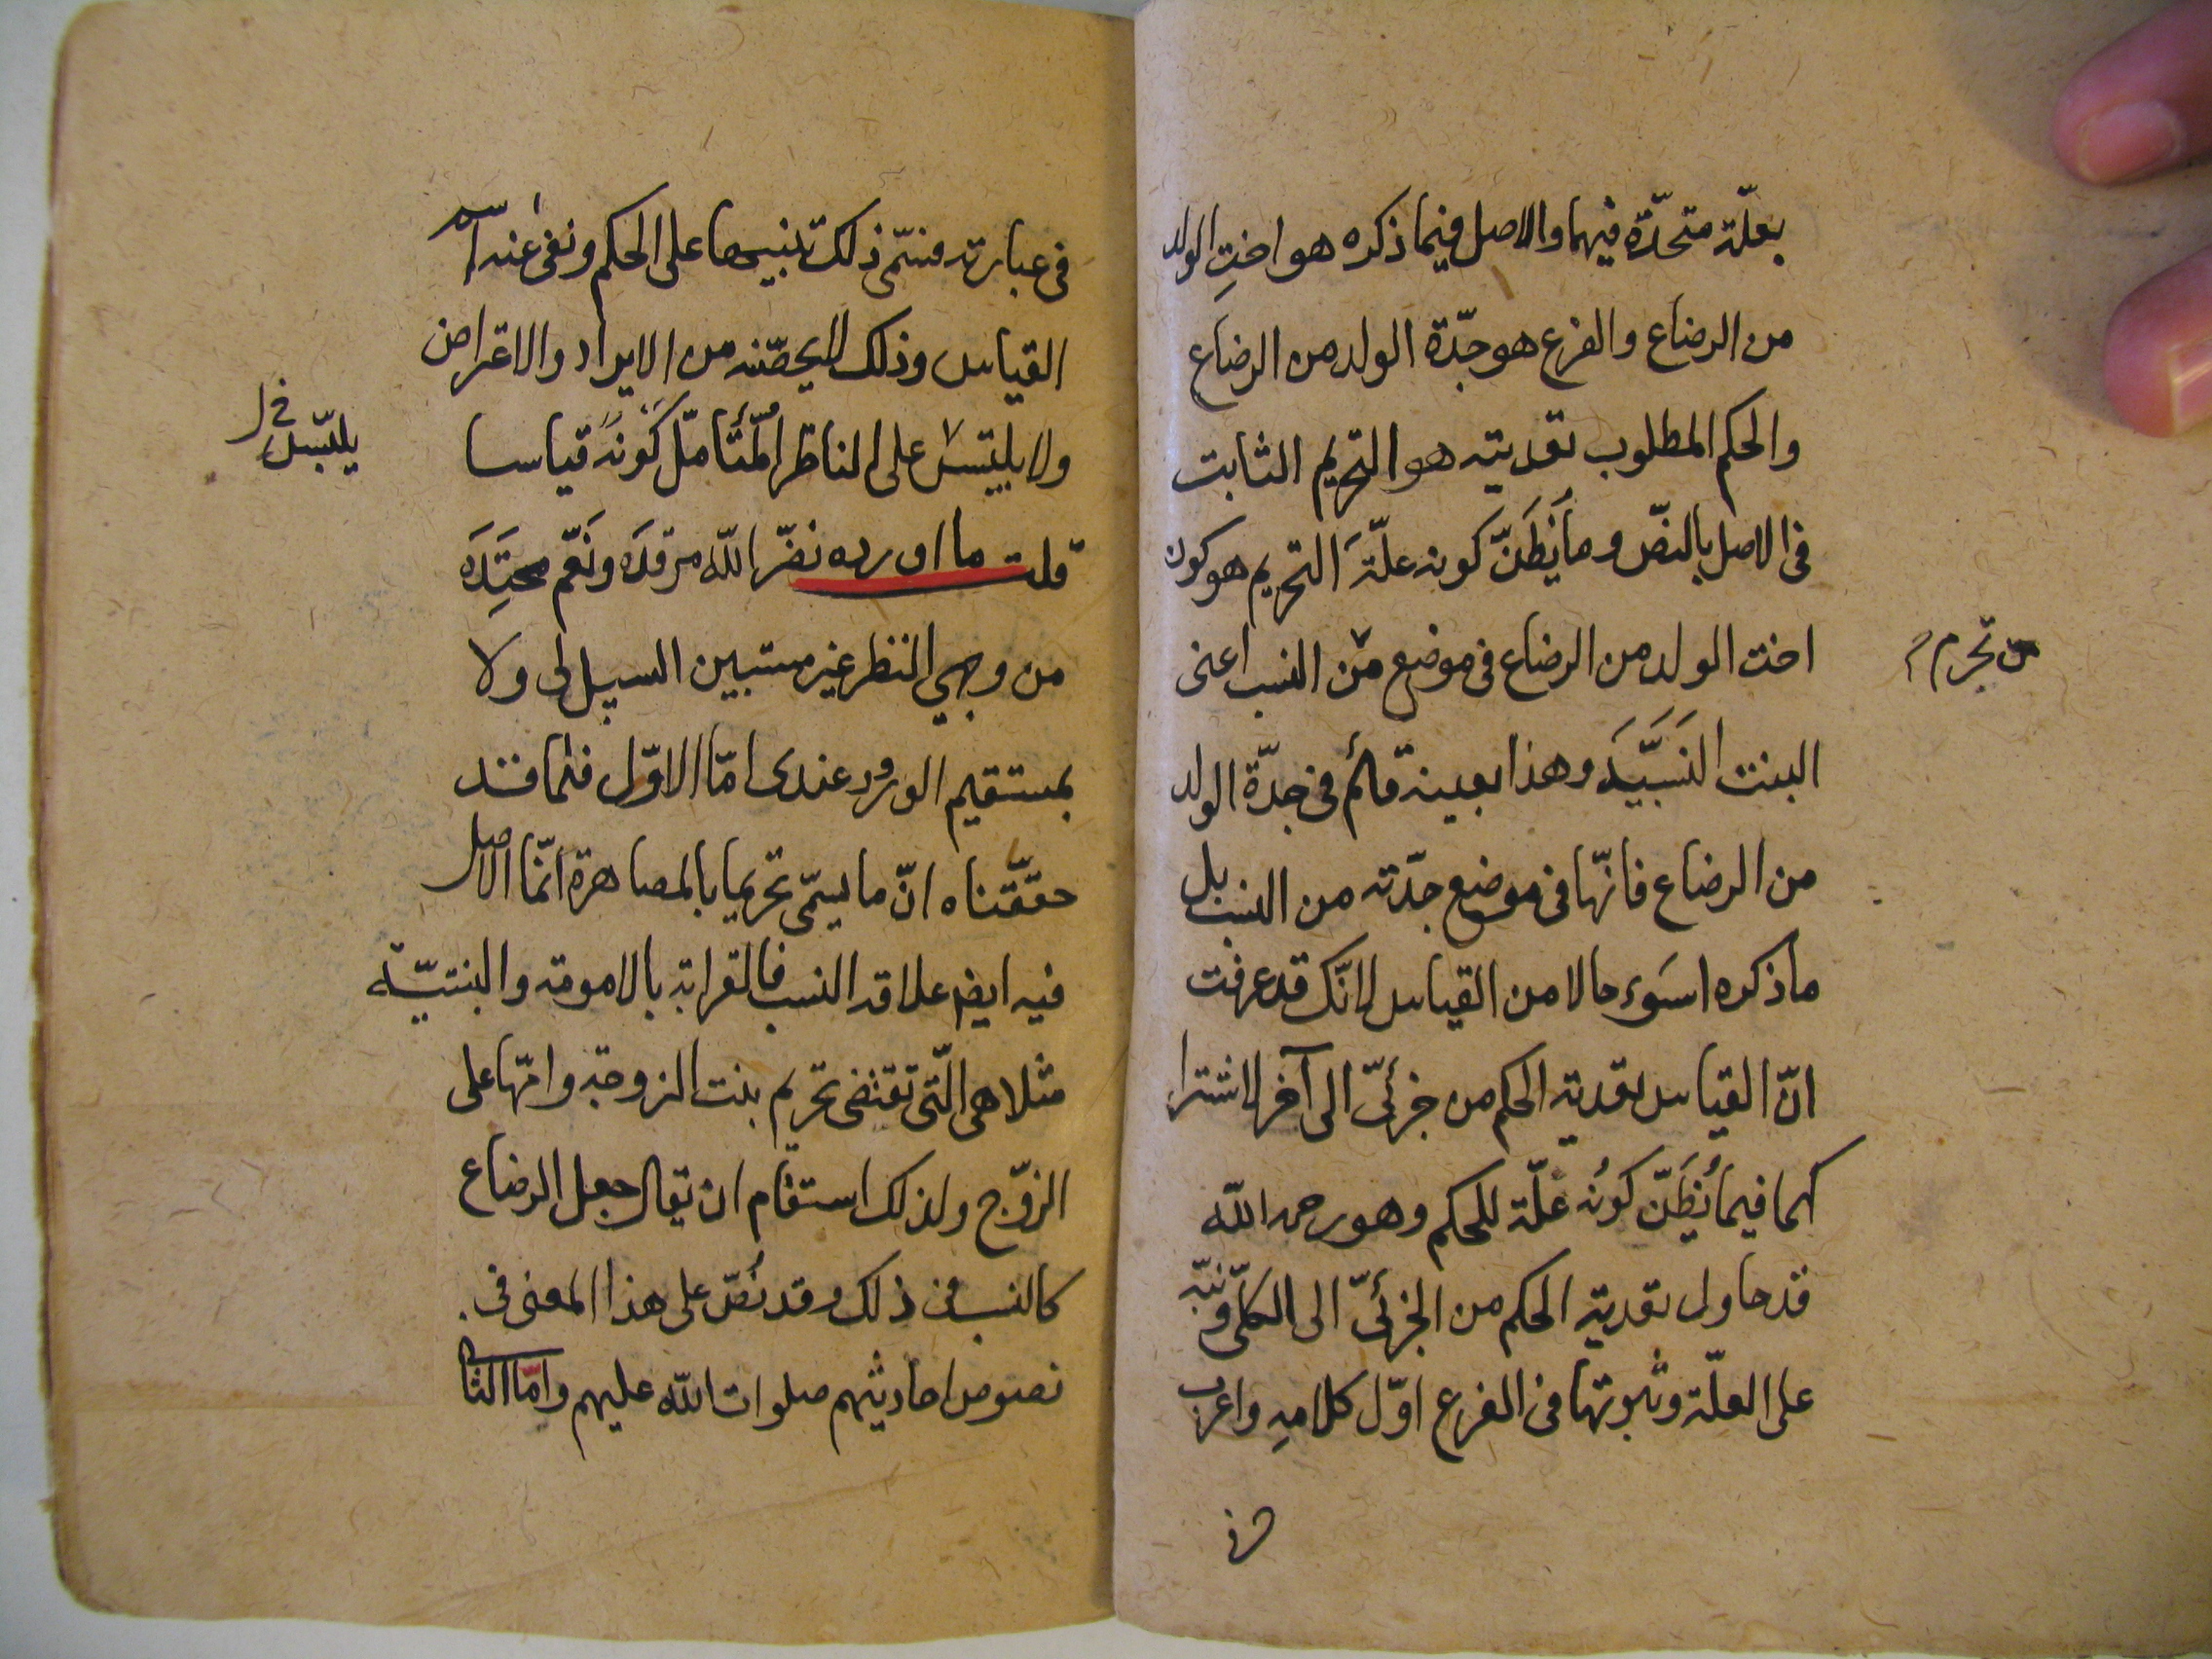 بعلّة متحدّة فيهما والاصل فيما ذكره هو اخت الولد
من الرضاع والفرع هو جدّة الولد من الرضاع
والحكم المطلوب تعديته هو التحريم الثابت
فى الاصل بالنصّ وما يُظَنّ كونه علّة التحريم هو كون
اخت الولد من الرضاع فى موضع من النسب اعنى
من تحرم
البنت النَسَبيَّة وهذا بعينه قائم فى جدّة الولد
من الرضاع فانّها فى موضع جدّته من النسب بل
ما ذكره اسوء حالا من القياس لانّك قد عرفت
انّ القياس تعدية الحكم من جزئىّ الى آخر لاشترا
كهما فيما يُظَنّ كونُه علّة للحكم وهو رحمه الله
قد حاول تعدية الحكم من الجزئىّ الى الكلّى ونبّه
على العلّة وثبوتها فى الفرع اوّل كلامهِ واعرب
فى
فى عبارته فسمّى ذلك تنبيها على الحكم ونفى عنه اسم
القياس وذلك لا يحصّنه من الايراد والاعتراض
ولا يلتبس على الناظر المتأمّل كونُه قياسا
يلبّس خ ل
قلت ما اورده نضّر الله مرقدَه ونَعّم محتِدَه
من وجهي النظر غير مستبين السبيل لى ولا
بمستقيم الورود عندى امّا الاوّل فلما قد
حقّقناه انّ ما يسمّى تحريما بالمصاهرة انّما الاصل
فيه ايضا علاقة النسب فالقرابة بالامومة والبنتيّة
مثلا هى الّتى تقتضى تحريم بنت الزوجة وامّها على
الزوّج ولذلك استقام ان يقال جعل الرضاع
كالنسب فى ذلك وقد نُصّ على هذا المعنى فى
نصوص احاديثهم صلوات الله عليهم وامّا الثا